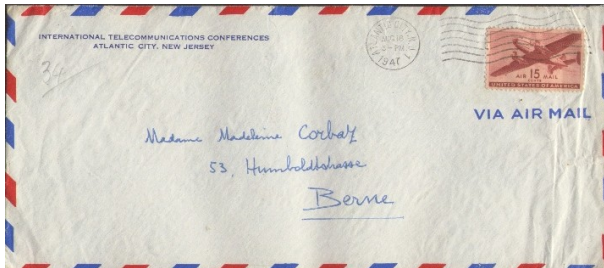 INTERNATIONAL TELECOMMUNICATIONS CONFERENCES
ATLANTIC CITY, NEW JERSEY
24
1947
AIR 15 MAIL
CENTS
UNITED STATES OF AMERICA
VIA AIR MAIL
Madame Madeleine Corbaz
53, Humboldtstrasse
Berne